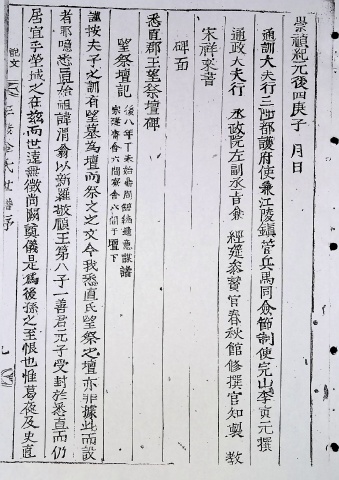 崇禎紀元後四庚子 月日
通訓大夫行三陟都護府使兼江陵鎭管兵馬同僉節制使完山李 元撰
通政大夫行 承政院左副丞旨兼 經筵參贊官春秋館修撰官知製 敎
宋祥來書
碑面
悉直郡王望祭壇碑
望祭壇記
後八年丁未始
宗 齋舍六間 舍八間于壇下
謹按夫子之訓有望墓爲壇而祭之之文今我悉直氏望祭之壇亦非據此而設
者耶噫悉直始祖諱渭翁以新羅敬順王第八子一善君元子受封於悉直而仍
居宜乎塋域之在玆而世遠無徵尚闕奠儀是爲後孫之至恨也惟葛夜及史直
記文